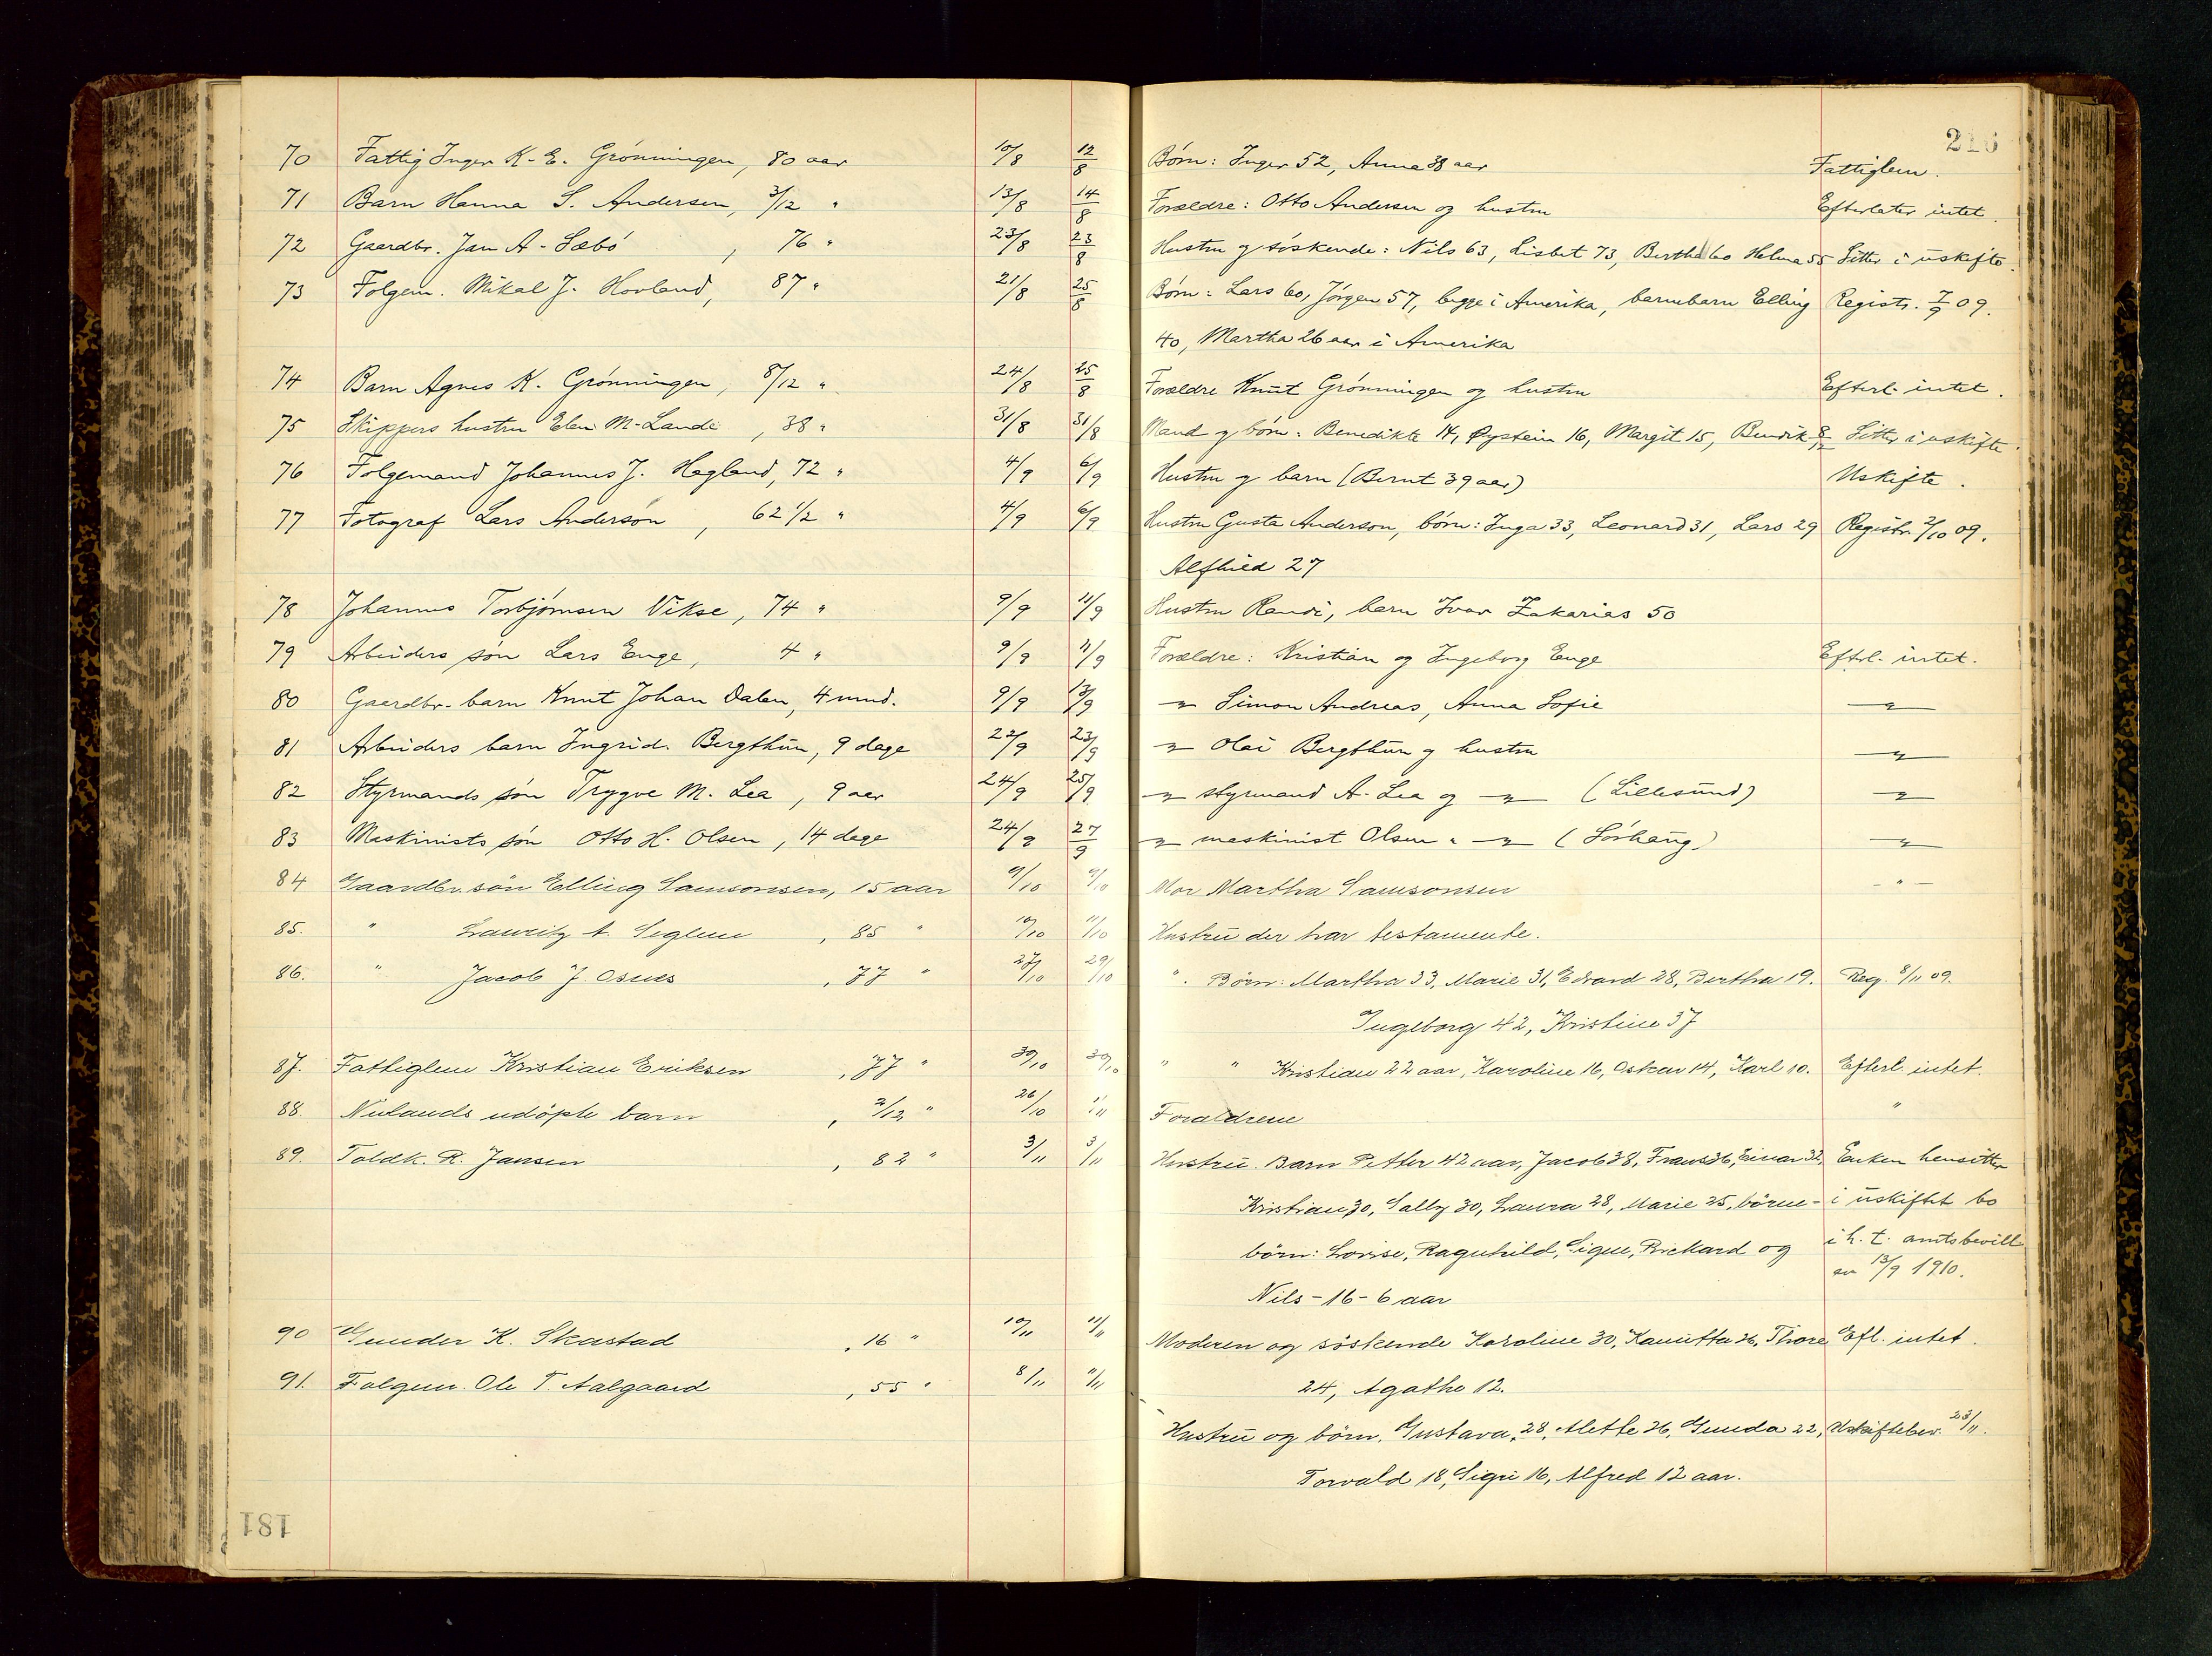 216
70 Fattig Inger K. E. Grönningen, 80 aar 10/8 12/8 Börn: Inger 52, Anna 38 aar Fattiglem.
71 Barn Hanna S. Andersen, 3/12 " 13/8 14/8 Forældre: Otto Andersen og hustru Efterlater intet.
72 Gaardbr. Jan A. Sæbö, 76 " 23/8 23/8 Hustru og söskende: Nils 63, Lisbet 73, Bertha 60 Helena 55 Sitter i uskifte.
73 Folgem. Mikal J. Hovland, 87 " 21/8 25/8 Börn: Lars 60, Jörgen 57, begge i Amerika, barnebarn Elling Registr. 7/9 09.
40, Martha 26 aar i Amerika
74 Barn Agnes K. Grönningen, 8/12 " 24/8 25/8 Forældre Knut Grönningen og hustru Efterl. intet.
75 Skippers hustru Elen M. Lande, 38 " 31/8 31/8 Mand og börn: Benedikte 14, Øystein 16, Margit 15, Bendik 8/12 Sitter i uskifte.
76 Folgemand Johannes J. Hagland, 72 " 4/9 6/9 Hustru og barn (Bernt 39 aar) Uskifte.
77 Fotograf Lars Anderson, 62 1/2 " 4/9 6/9 Hustru Gusta Anderson, börn: Inga 33, Leonard 31, Lars 29 Registr. 2/10 09.
Alfhild 27
78 Johannes Torbjörnsen Vikse, 74 " 9/9 11/9 Hustru Randi, barn Ivar Zakarias 50
79 Arbeiders sön Lars Enge, 4 " 9/9 11/9 Forældre: Kristian og Ingeborg Enge Efterl. intet.
80 Gaardbr. barn Knut Johan Dalen, 4 mnd. 9/9 13/9 -"- Simon Andreas, Anna Sofie -"-
81 Arbeiders barn Ingrid Bergthun, 9 dage 22/9 23/9 -"- Olai Bergthun og hustru -"-
82 Styrmands sön Trygve M. Lea, 9 aar 24/9 25/9 -"- styrmand A. Lea og -"- (Lillesund) -"-
83 Maskinists sön Otto H. Olsen, 14 dage 24/9 27/9 -"- maskinist Olsen " -"- (Sörhaug) -"-
84 Gaardbr. sön Elling Samsonsen, 15 aar 9/10 9/10 Mor Martha Samsonsen - " -
85. " Lauritz t. Seglem, 85 " 10/10 11/10 Hustru der har testamente.
86. " Jacob J. Osnes, 77 " 27/10 29/10 ". Börn: Martha 33, Marie 31, Edvard 28, Bertha 19. Reg. 8/11 09.
Ingeborg 42, Kristine 37
87. Fattiglem Kristian Eriksen, 77 " 30/10 30/10 " " Kristian 22 aar, Karoline 16, Oskar 14, Karl 10. Efterl. intet.
88. Nulands udöpte barn, 2/12 " 26/10 1/11 Forældrene "
89. Toldk. R. Jansen, 82 " 3/11 3/11 Hustru. Barn Petter 42 aar, Jacob 38, Frans 36, Einar 32, Enken hensitter
Kristian 30, Sally 30, Laura 28, Marie 25, börne- i uskiftet bo
börn: Lovise, Ragnhild, Signe, Rickard og i h. t. amtsbevill
Nils - 16 - 6 aar av 13/9 1910.
90 Gunder K. Skastad, 16 " 10/11 11/11 Moderen og söskende Karoline 30, Kanutta 26, Thore Efl. intet.
91. Folgem. Ole T. Aalgaard, 55 " 8/11 11/11 24, Agathe 12.
Hustru og börn. Gustava, 28, Alette 26, Gunda 22, Uskiftebev. 23/11.
Torvald 18, Sigri 16, Alfred 12 aar.
181